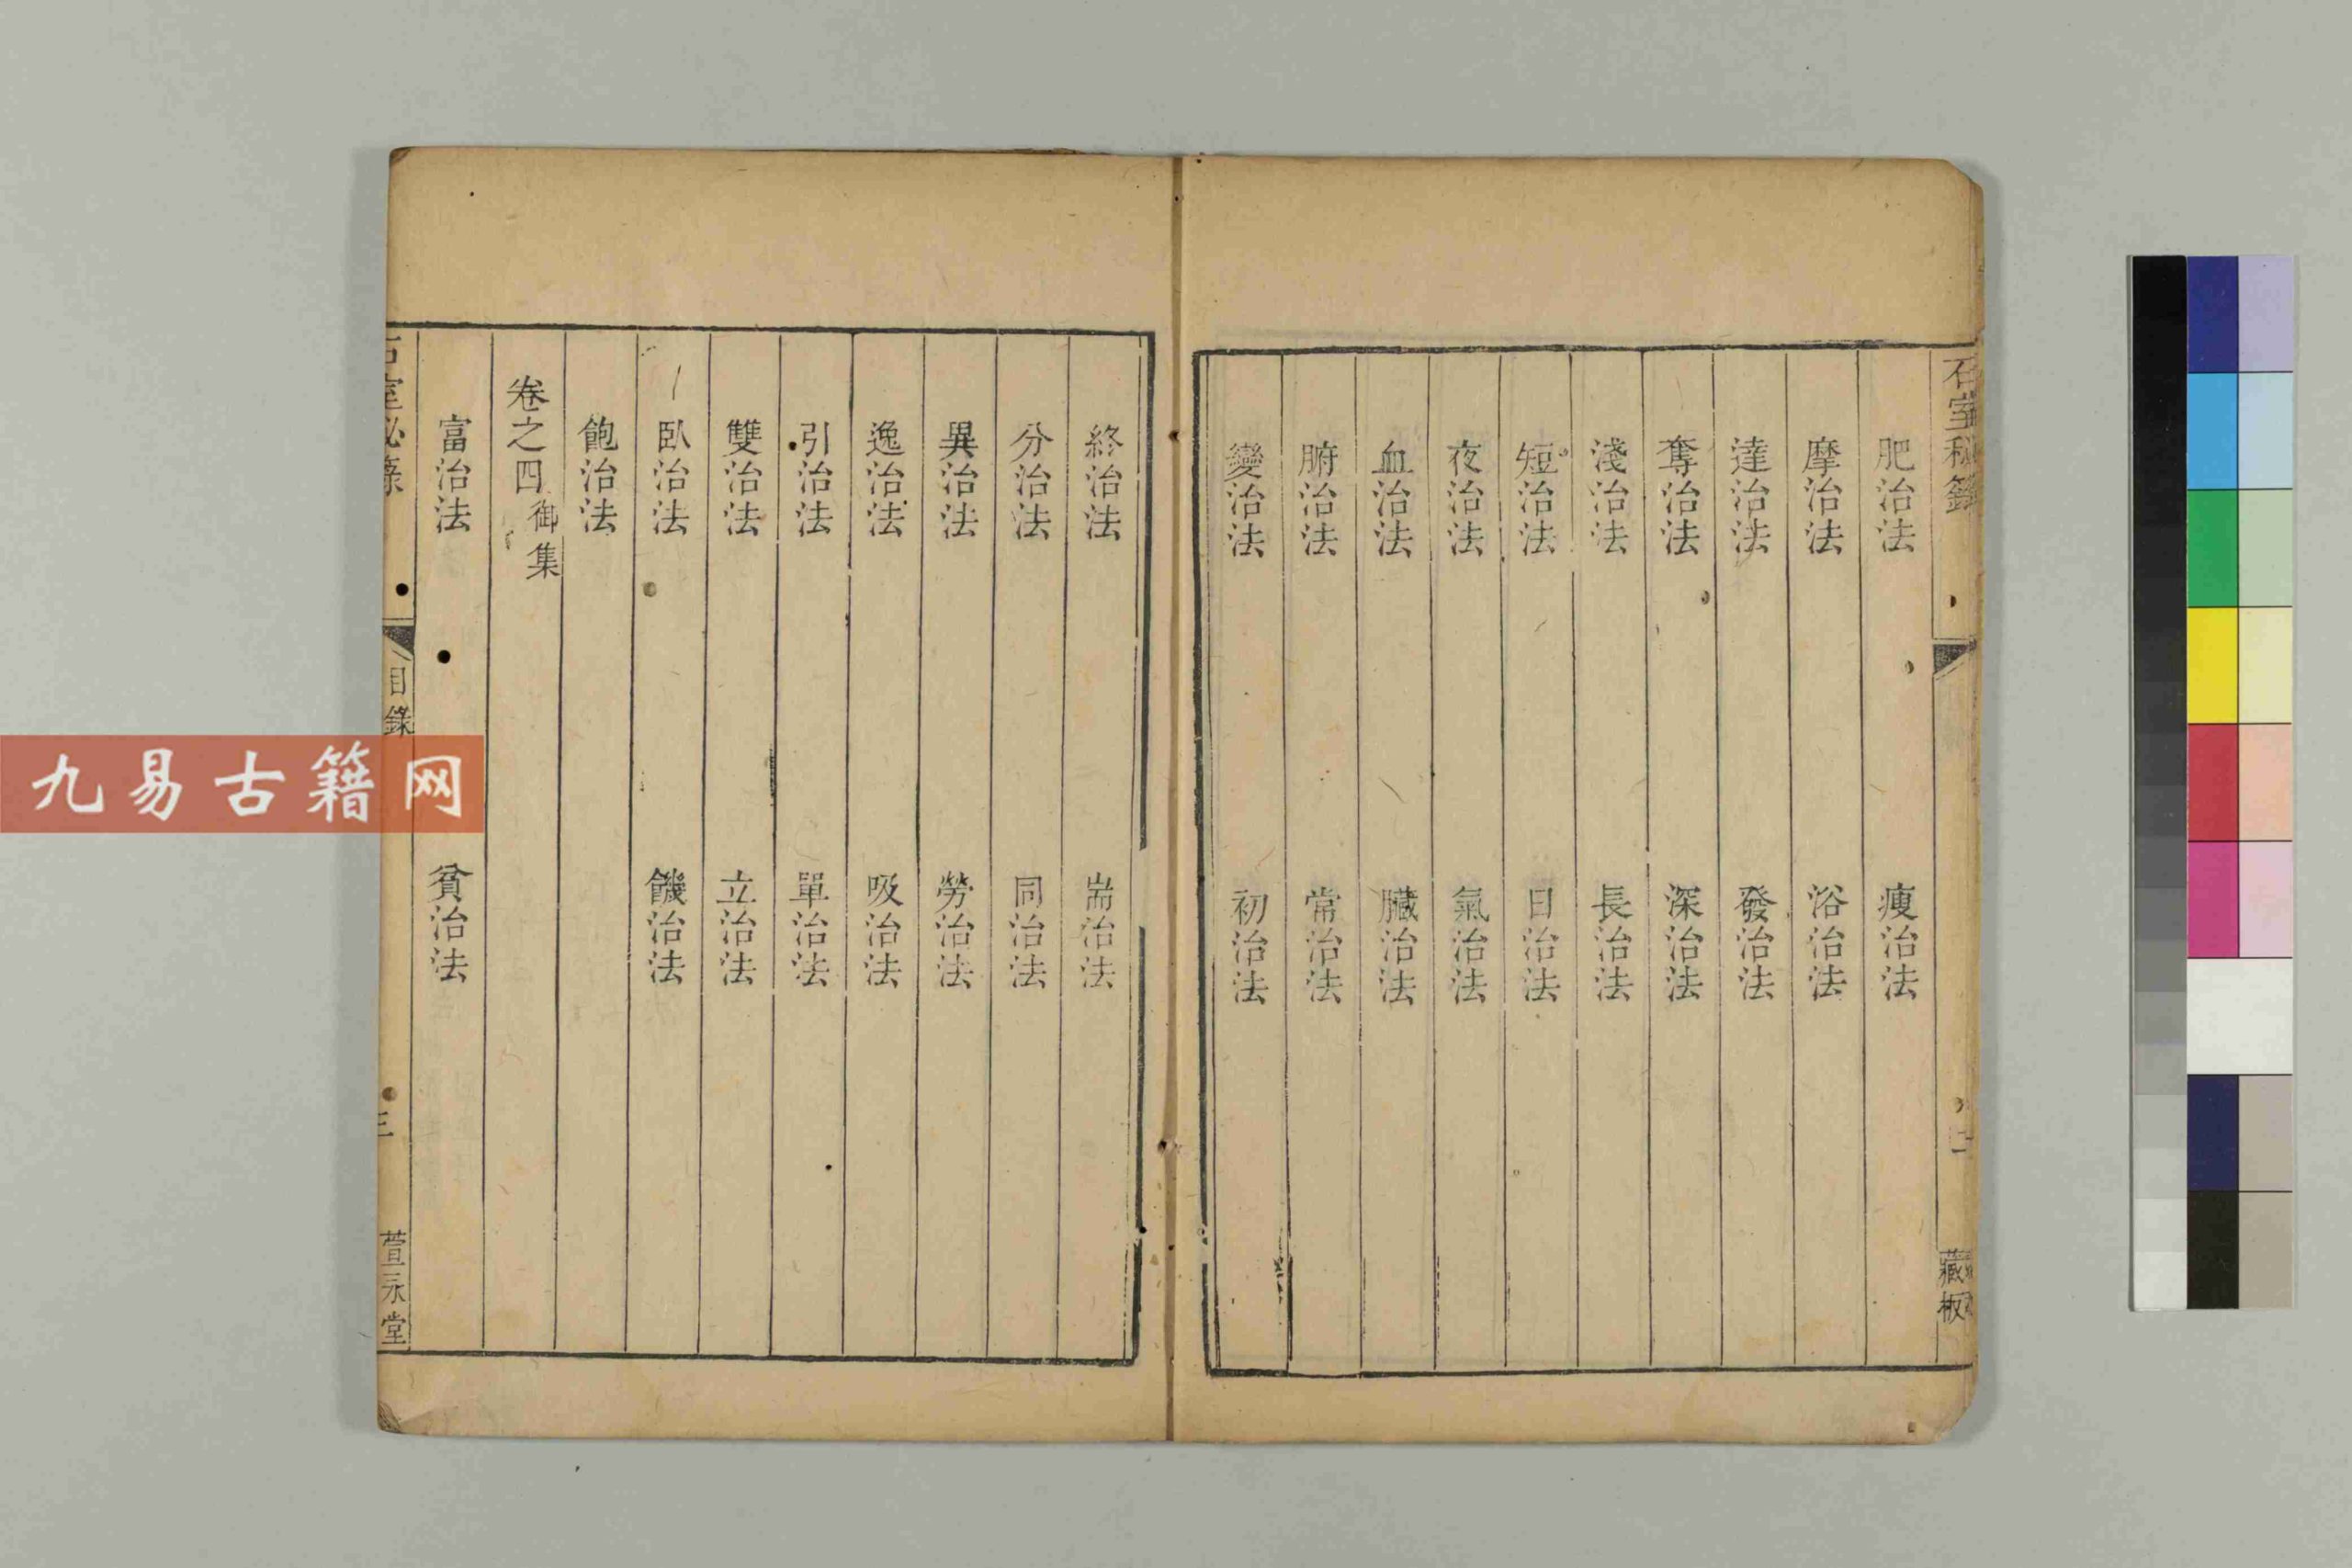 石室秘籙
藏板
肥治法 瘦治法
摩治法 浴治法
達治法 發治法
奪治法 深治法
淺治法 長治法
短治法 日治法
夜治法 氣治法
血治法 臟治法
腑治法 常治法
變治法 初治法
終治法 耑治法
分治法 同治法
異治法 勞治法
逸治法 吸治法
引治法 單治法
雙治法 立治法
臥治法 饑治法
飽治法
卷之四御集
富治法 貧治法
石室秘籙
目錄
三
萱永堂
九易古籍网